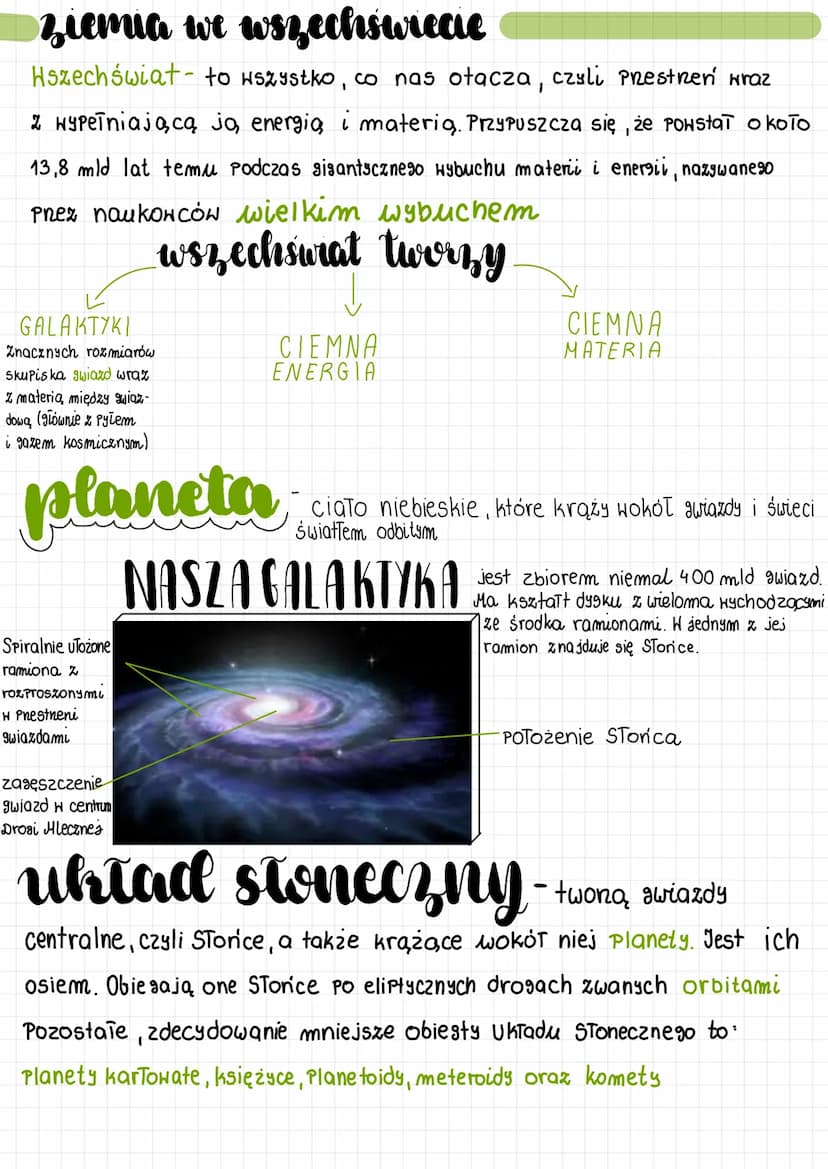 ziemia we wszechświecie
Wszechświat - to wszystko, co nas otacza, czyli przestrzeń wraz
z wypełniającą ją energią i materią. Przypuszcza się, że powstał około
13,8 mld lat temu podczas gigantycznego wybuchu materii i energii, nazywanego
przez naukowców wielkim wybuchem
wszechświat tworzy
GALAKTYKI
Znacznych rozmiarów
skupiska gwiazd wraz
z materią między gwiaz-
dową (głównie z pyłem
i gazem kosmicznym)
CIEMNA
ENERGIA
CIEMNA
MATERIA
planeta - ciało niebieskie, które krąży wokół gwiazdy i świeci
światłem odbitym
NASZA GALAKTYKA
jest zbiorem niemal 400 mld gwiazd.
Ma kształt dysku z wieloma wychodzącymi
ze środka ramionami. W jednym z jej
ramion znajduje się Słońce.
Spiralnie ułożone
ramiona z
rozproszonymi
w przestrzeni
gwiazdami
położenie Słońca
zagęszczenie
gwiazd w centrum
Drogi Mlecznej
układ słoneczny - tworzą gwiazdy
centralne, czyli Słońce, a także krążące wokół niej planety. Jest ich
osiem. Obiegają one Słońce po eliptycznych drogach zwanych orbitami
Pozostałe, zdecydowanie mniejsze obiekty Układu Słonecznego to:
planety karłowate, księżyce, planetoidy, meteroidy oraz komety